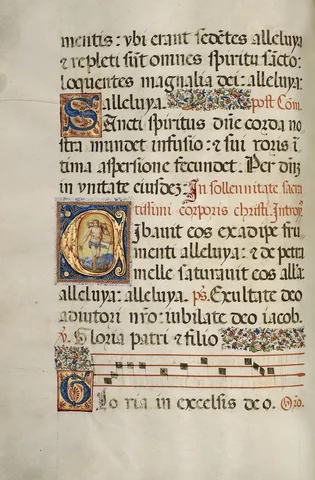 mentis: vbi erant sedētes alleluya
⁊ repleti sūt omnes spiritu sācto:
loquentes magnalia dei: alleluya:
alleluya. post Cōm.
Sancti spiritus dn̄e corda no
stra mundet infusio: ⁊ sui roris ī
tima aspersione fecundet. Per dn̄z
in vnitate eiusdez: In sollennitate sacra
tissimi corporis christi. Introy̓
Cibauit eos ex adipe fru
menti alleluya: ⁊ de petra
melle saturauit eos alla:
alleluya: alleluya. ps. Exultate deo
adiutori nr̄o: iubilate deo iacob.
v. Gloria patri ⁊ filio
Gloria in excelsis deo. Orō.